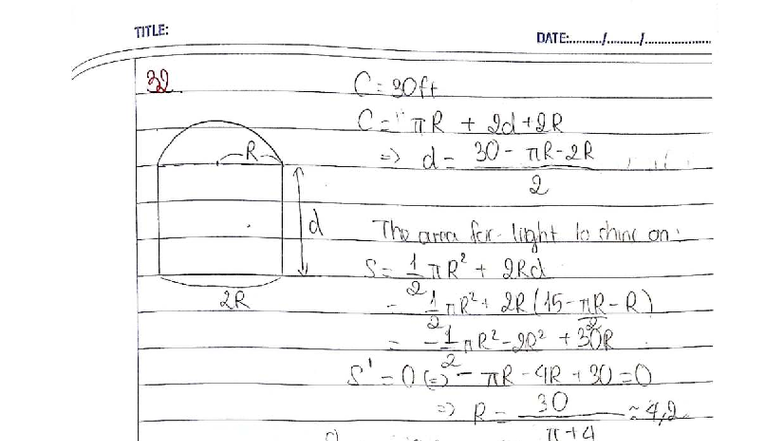 TITLE:
DATE:........./........./...................
32
C = 30ft
C = πR + 2d + 2R
=> d = (30 - πR - 2R) / 2
R
d
2R
The area for light to shine on:
S = 1/2 πR² + 2Rd
= 1/2 πR² + 2R(15 - πR/2 - R)
= -1/2 πR² - 2R² + 30R
S' = 0 (=) - πR - 4R + 30 = 0
=> R = 30 / (π + 4) ≈ 4,2